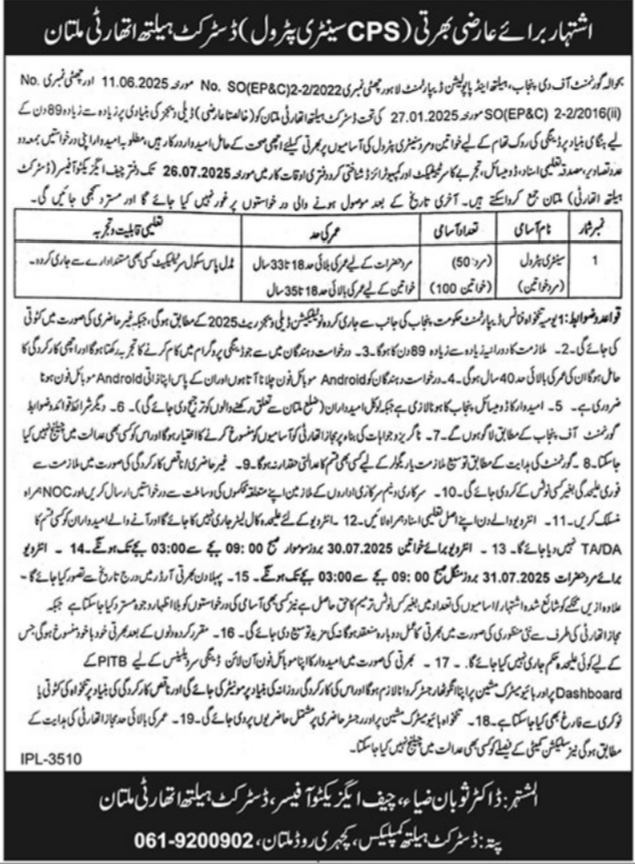 اشتہار برائے عارضی بھرتی (CPS سینٹری پٹرول) ڈسٹرکٹ ہیلتھ اتھارٹی ملتان
بحوالہ گورنمنٹ آف دی پنجاب، ہیلتھ اینڈ پاپولیشن ڈیپارٹمنٹ لاہور چٹھی نمبری No. SO(EP&C)2-2/2022 مورخہ 11.06.2025 اور چٹھی نمبری No.
SO(EP&C) 2-2/2016(ii) مورخہ 27.01.2025 کی تحت ڈسٹرکٹ ہیلتھ اتھارٹی ملتان کو (خالصتاً عارضی) ڈیلی ویجز کی بنیاد پر زیادہ سے زیادہ 89 دن کے
لیے ہنگامی بنیاد پر ڈینگی کی روک تھام کے لیے خواتین و مرد سینٹری پٹرول کی آسامیوں پر بھرتی کیلئے اچھی صحت کے حامل امیدوار درکار ہیں۔ مطلوبہ امیدوار اپنی درخواستیں بمعہ دو
عدد تصاویر، مصدقہ تعلیمی اسناد، ڈومیسائل، تجربے کا سرٹیفکیٹ اور کمپیوٹرائزڈ شناختی کارڈ دفتری اوقات کار میں مورخہ 26.07.2025 تک دفتر چیف ایگزیکٹو آفیسر (ڈسٹرکٹ
ہیلتھ اتھارٹی) ملتان جمع کروا سکتے ہیں۔ آخری تاریخ کے بعد موصول ہونے والی درخواستوں پر غور نہیں کیا جائے گا اور مسترد سمجھی جائیں گی۔
نمبر شمار نام آسامی تعداد آسامی عمر کی حد تعلیمی قابلیت و تجربہ
1 سینٹری پٹرول (مرد 50) مرد حضرات کے لیے عمر کی بالائی حد 18 تا 33 سال مڈل پاس سکول سرٹیفکیٹ کسی بھی مستند ادارے سے جاری کردہ۔
(مرد/خواتین) (خواتین 100) خواتین کے لیے عمر کی بالائی حد 18 تا 35 سال
قواعد و ضوابط: 1۔ یومیہ تنخواہ فنانس ڈیپارٹمنٹ حکومت پنجاب کی جانب سے جاری کردہ نوٹیفکیشن ڈیلی ویجز ریٹ 2025 کے مطابق ہوگی، جبکہ غیر حاضری کی صورت میں کٹوتی
کی جائے گی۔ 2۔ ملازمت کا دورانیہ زیادہ سے زیادہ 89 دن کا ہوگا۔ 3۔ درخواست دہندگان میں سے جو ڈینگی پروگرام میں کام کرنے کا تجربہ رکھتا ہوگا اور اچھی کارکردگی کا
حامل ہوگا ان کی عمر کی بالائی حد 40 سال ہوگی۔ 4۔ درخواست دہندگان کو Android موبائل فون چلانا آتا ہو اور ان کے پاس اپنا ذاتی Android موبائل فون ہونا
ضروری ہے۔ 5۔ امیدوار کا ڈومیسائل پنجاب کا ہونا لازمی ہے جبکہ لوکل امیدواران (ضلع ملتان سے تعلق رکھنے والوں کو ترجیح دی جائے گی)۔ 6۔ دیگر شرائط فوائد و ضوابط
گورنمنٹ آف پنجاب کے مطابق لاگو ہوں گے۔ 7۔ ناگزیر وجوہات کی بناء پر مجاز اتھارٹی کو آسامیوں کو منسوخ کرنے کا اختیار ہوگا اور اس کو کسی بھی عدالت میں چیلنج نہیں کیا
جاسکتا۔ 8۔ گورنمنٹ کی ہدایت کے مطابق توسیع ملازمت یا ریگولر کے لیے کسی بھی قسم کا عدالتی حقدار نہ ہوگا۔ 9۔ غیر حاضری/ناقص کارکردگی کی صورت میں ملازمت سے
فوری علیحدگی بغیر کسی نوٹس کے کر دی جائے گی۔ 10۔ سرکاری و نیم سرکاری اداروں کے ملازمین اپنے متعلقہ محکموں کی وساطت سے درخواستیں ارسال کریں اور NOC ہمراہ
منسلک کریں۔ 11۔ انٹرویو والے دن اپنے اصل تعلیمی اسناد ہمراہ لائیں۔ 12۔ انٹرویو کے لئے علیحدہ کال لیٹر جاری نہیں کیا جائے گا اور آنے والے امیدواران کو کسی قسم کا
TA/DA نہیں دیا جائے گا۔ 13۔ انٹرویو برائے خواتین 30.07.2025 بروز سوموار صبح 09:00 بجے سے 03:00 بجے تک ہونگے۔ 14۔ انٹرویو
برائے مرد حضرات 31.07.2025 بروز منگل صبح 09:00 بجے سے 03:00 بجے تک ہونگے۔ 15۔ پہلا دن بھرتی آرڈر میں درج تاریخ سے تصور کیا جائے گا۔
علاوہ ازیں محکمے کو شائع شدہ اشتہار/اسامیوں کی تعداد میں بغیر کسی نوٹس ترمیم کا حق حاصل ہے نیز کسی بھی آسامی کی درخواستوں کو بلا اظہار وجوہ مسترد کیا جاسکتا ہے جبکہ
مجاز اتھارٹی کی طرف سے نئی منظوری کی صورت میں بھرتی کا عمل دوبارہ منعقد ہوگا نہ کی مزید توسیع دی جائے گی۔ 16۔ مقرر کردہ دنوں کے بعد بھرتی خود بخود منسوخ ہوگی جس
کے لیے کوئی علیحدہ حکم جاری نہیں کیا جائے گا۔ 17۔ بھرتی کی صورت میں امیدوار کا اپنا موبائل فون آن لائن ڈینگی سرویلنس کے لیے PITB کے
Dashboard پر اور بائیو میٹرک مشین پر اپنا انگوٹھا رجسٹر کروانا لازم ہوگا اور اس کی کارکردگی روزانہ کی بنیاد پر مونیٹر کی جائے گی اور ناقص کارکردگی کی بنیاد پر تنخواہ کی کٹوتی یا
نوکری سے فارغ بھی کیا جاسکتا ہے۔ 18۔ تنخواہ بائیو میٹرک مشین پر اور رجسٹر حاضری پر مشتمل حاضریوں پر دی جائے گی۔ 19۔ عمر کی بالائی حد مجاز اتھارٹی کی ہدایت کے
مطابق ہوگی نیز سلیکشن کمیٹی کے فیصلے کو کسی بھی عدالت میں چیلنج نہیں کیا جاسکتا۔
IPL-3510
المشتہر: ڈاکٹر ثوبان ضیاء، چیف ایگزیکٹو آفیسر، ڈسٹرکٹ ہیلتھ اتھارٹی ملتان
پتہ: ڈسٹرکٹ ہیلتھ کمپلیکس، کچہری روڈ ملتان، 061-9200902